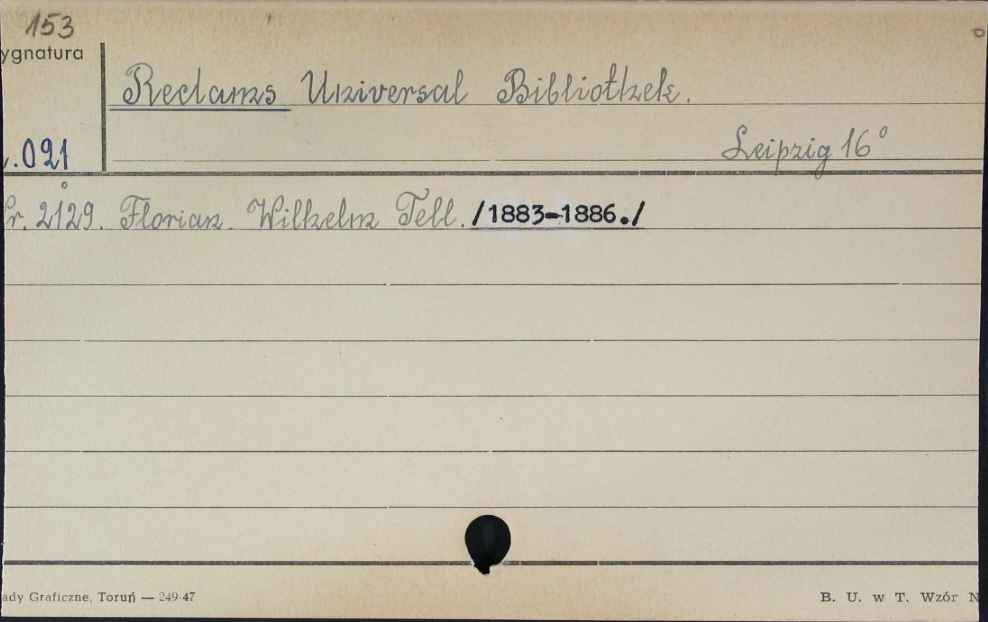 153
ygnatura
Reclams Universal Bibliothek.
.021
Leipzig 16°
r. 2129. Florian. Wilhelm Tell. /1883-1886./
ady Graficzne, Toruń — 249 47
B. U. w T. Wzór N